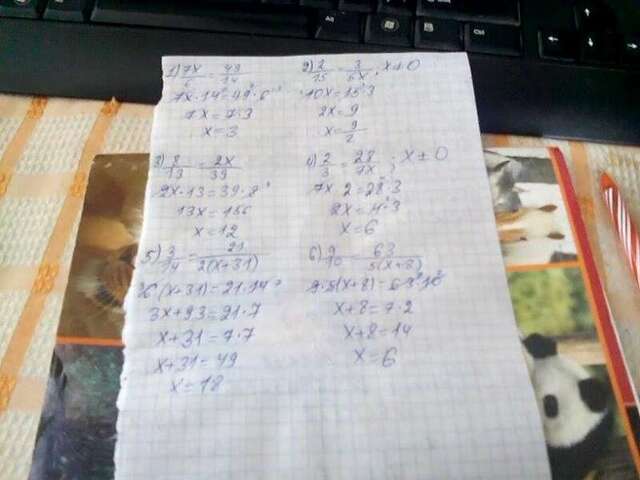 1) 7x/6 = 49/14
7x·14=49·6
7x=7·3
x=3
2) 2/15 = 3/5x; x≠0
10x=15·3
2x=9
x=9/2
3) 8/13 = 2x/39
2x·13=39·8
13x=156
x=12
4) 2/3 = 28/7x; x≠0
7x·2=28·3
2x=4·3
x=6
5) 3/14 = 21/2(x+31)
(x+31)=21·14
3x+93=21·7
x+31=7·7
x+31=49
x=18
6) 9/10 = 63/5(x+8)
9·5(x+8)=63·10
x+8=7·2
x+8=14
x=6